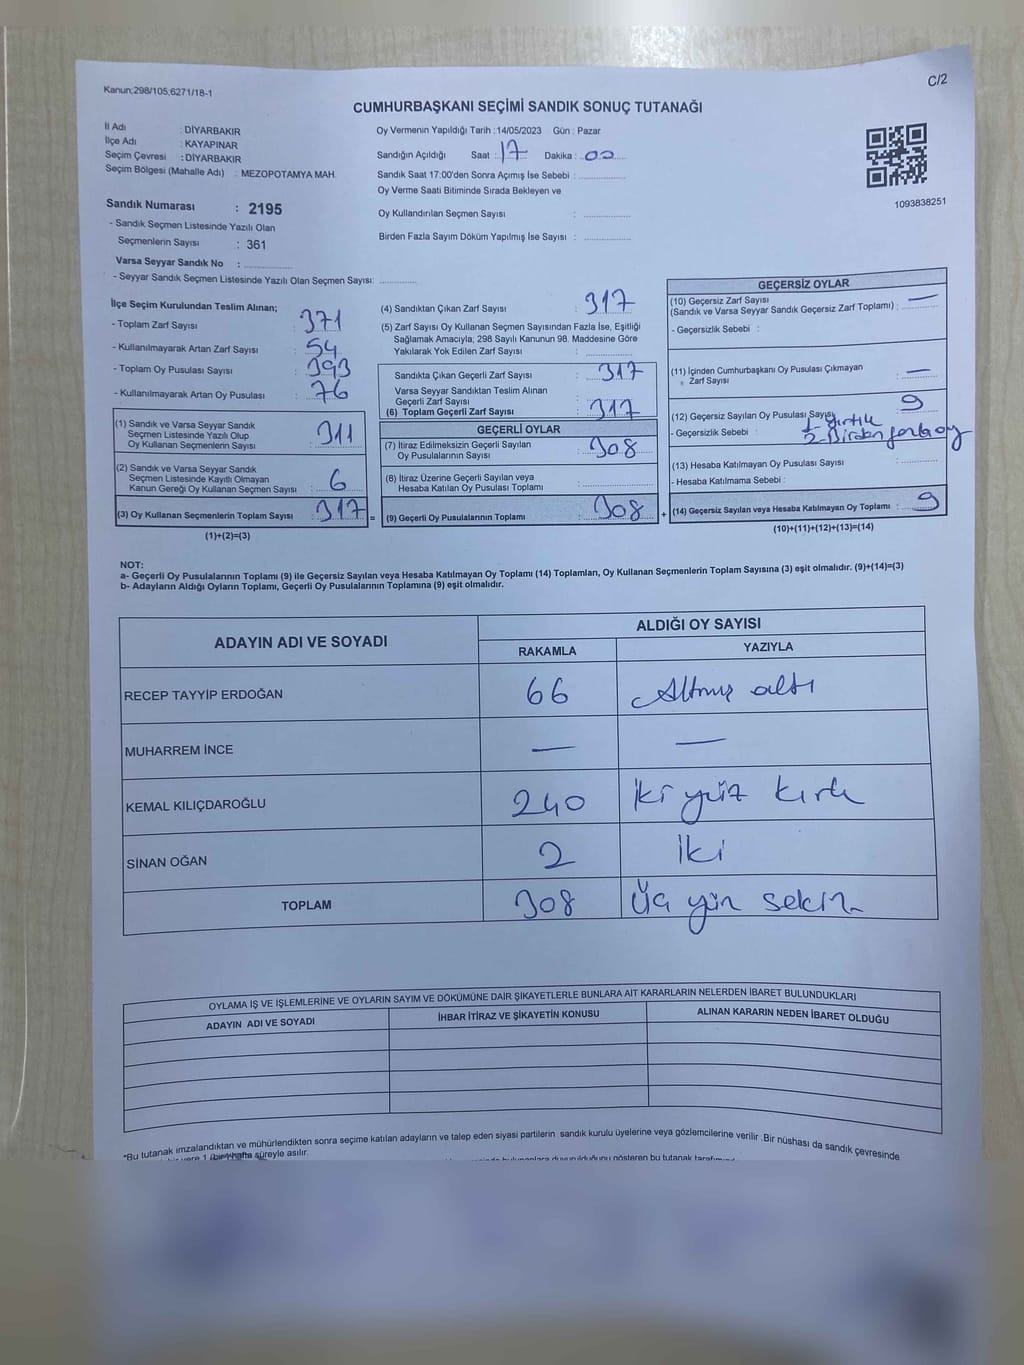 C/2
Kanun;298/105,6271/18-1
CUMHURBAŞKANI SEÇİMİ SANDIK SONUÇ TUTANAĞI
İl Adı : DİYARBAKIR
İlçe Adı : KAYAPINAR
Seçim Çevresi : DİYARBAKIR
Seçim Bölgesi (Mahalle Adı) : MEZOPOTAMYA MAH.
Sandık Numarası : 2195
- Sandık Seçmen Listesinde Yazılı Olan
Seçmenlerin Sayısı : 361
Varsa Seyyar Sandık No :
- Seyyar Sandık Seçmen Listesinde Yazılı Olan Seçmen Sayısı:
Oy Vermenin Yapıldığı Tarih : 14/05/2023 Gün : Pazar
Sandığın Açıldığı Saat : 17 Dakika : 00
Sandık Saat 17.00'den Sonra Açımış İse Sebebi :
Oy Verme Saati Bitiminde Sırada Bekleyen ve
Oy Kullandırılan Seçmen Sayısı :
Birden Fazla Sayım Döküm Yapılmış İse Sayısı :
1093838251
İlçe Seçim Kurulundan Teslim Alınan;
- Toplam Zarf Sayısı : 371
- Kullanılmayarak Artan Zarf Sayısı : 54
- Toplam Oy Pusulası Sayısı : 393
- Kullanılmayarak Artan Oy Pusulası : 76
(1) Sandık ve Varsa Seyyar Sandık
Seçmen Listesinde Yazılı Olup
Oy Kullanan Seçmenlerin Sayısı : 311
(2) Sandık ve Varsa Seyyar Sandık
Seçmen Listesinde Kayıtlı Olmayan
Kanun Gereği Oy Kullanan Seçmen Sayısı : 6
(3) Oy Kullanan Seçmenlerin Toplam Sayısı : 317 =
(1)+(2)=(3)
(4) Sandıktan Çıkan Zarf Sayısı : 317
(5) Zarf Sayısı Oy Kullanan Seçmen Sayısından Fazla İse, Eşitliği
Sağlamak Amacıyla, 298 Sayılı Kanunun 98. Maddesine Göre
Yakılarak Yok Edilen Zarf Sayısı :
Sandıkta Çıkan Geçerli Zarf Sayısı : 317
Varsa Seyyar Sandıktan Teslim Alınan
Geçerli Zarf Sayısı :
(6) Toplam Geçerli Zarf Sayısı : 317
GEÇERLİ OYLAR
(7) İtiraz Edilmeksizin Geçerli Sayılan
Oy Pusulalarının Sayısı : 308
(8) İtiraz Üzerine Geçerli Sayılan veya
Hesaba Katılan Oy Pusulası Toplamı :
(9) Geçerli Oy Pusulalarının Toplamı : 308 +
GEÇERSİZ OYLAR
(10) Geçersiz Zarf Sayısı —
(Sandık ve Varsa Seyyar Sandık Geçersiz Zarf Toplamı) :
- Geçersizlik Sebebi :
(11) İçinden Cumhurbaşkanı Oy Pusulası Çıkmayan
Zarf Sayısı : —
(12) Geçersiz Sayılan Oy Pusulası Sayısı 9
1- Yırtık
- Geçersizlik Sebebi : 2- Birden fazla oy
(13) Hesaba Katılmayan Oy Pusulası Sayısı :
- Hesaba Katılmama Sebebi :
(14) Geçersiz Sayılan veya Hesaba Katılmayan Oy Toplamı : 9
(10)+(11)+(12)+(13)=(14)
NOT:
a- Geçerli Oy Pusulalarının Toplamı (9) ile Geçersiz Sayılan veya Hesaba Katılmayan Oy Toplamı (14) Toplamları, Oy Kullanan Seçmenlerin Toplam Sayısına (3) eşit olmalıdır. (9)+(14)=(3)
b- Adayların Aldığı Oyların Toplamı, Geçerli Oy Pusulalarının Toplamına (9) eşit olmalıdır.
ADAYIN ADI VE SOYADI ALDIĞI OY SAYISI
RAKAMLA YAZIYLA
RECEP TAYYİP ERDOĞAN 66 Altmış altı
MUHARREM İNCE — —
KEMAL KILIÇDAROĞLU 240 İki yüz kırk
SİNAN OĞAN 2 İki
TOPLAM 308 Üç yüz sekiz
OYLAMA İŞ VE İŞLEMLERİNE VE OYLARIN SAYIM VE DÖKÜMÜNE DAİR ŞİKAYETLERLE BUNLARA AİT KARARLARIN NELERDEN İBARET BULUNDUKLARI
ADAYIN ADI VE SOYADI İHBAR İTİRAZ VE ŞİKAYETİN KONUSU ALINAN KARARIN NEDEN İBARET OLDUĞU
*Bu tutanak imzalandıktan ve mühürlendikten sonra seçime katılan adayların ve talep eden siyasi partilerin sandık kurulu üyelerine veya gözlemcilerine verilir .Bir nüshası da sandık çevresinde
1 (bir) hafta süreyle asılır.
bulunanlara duyurulduğunu gösteren bu tutanak